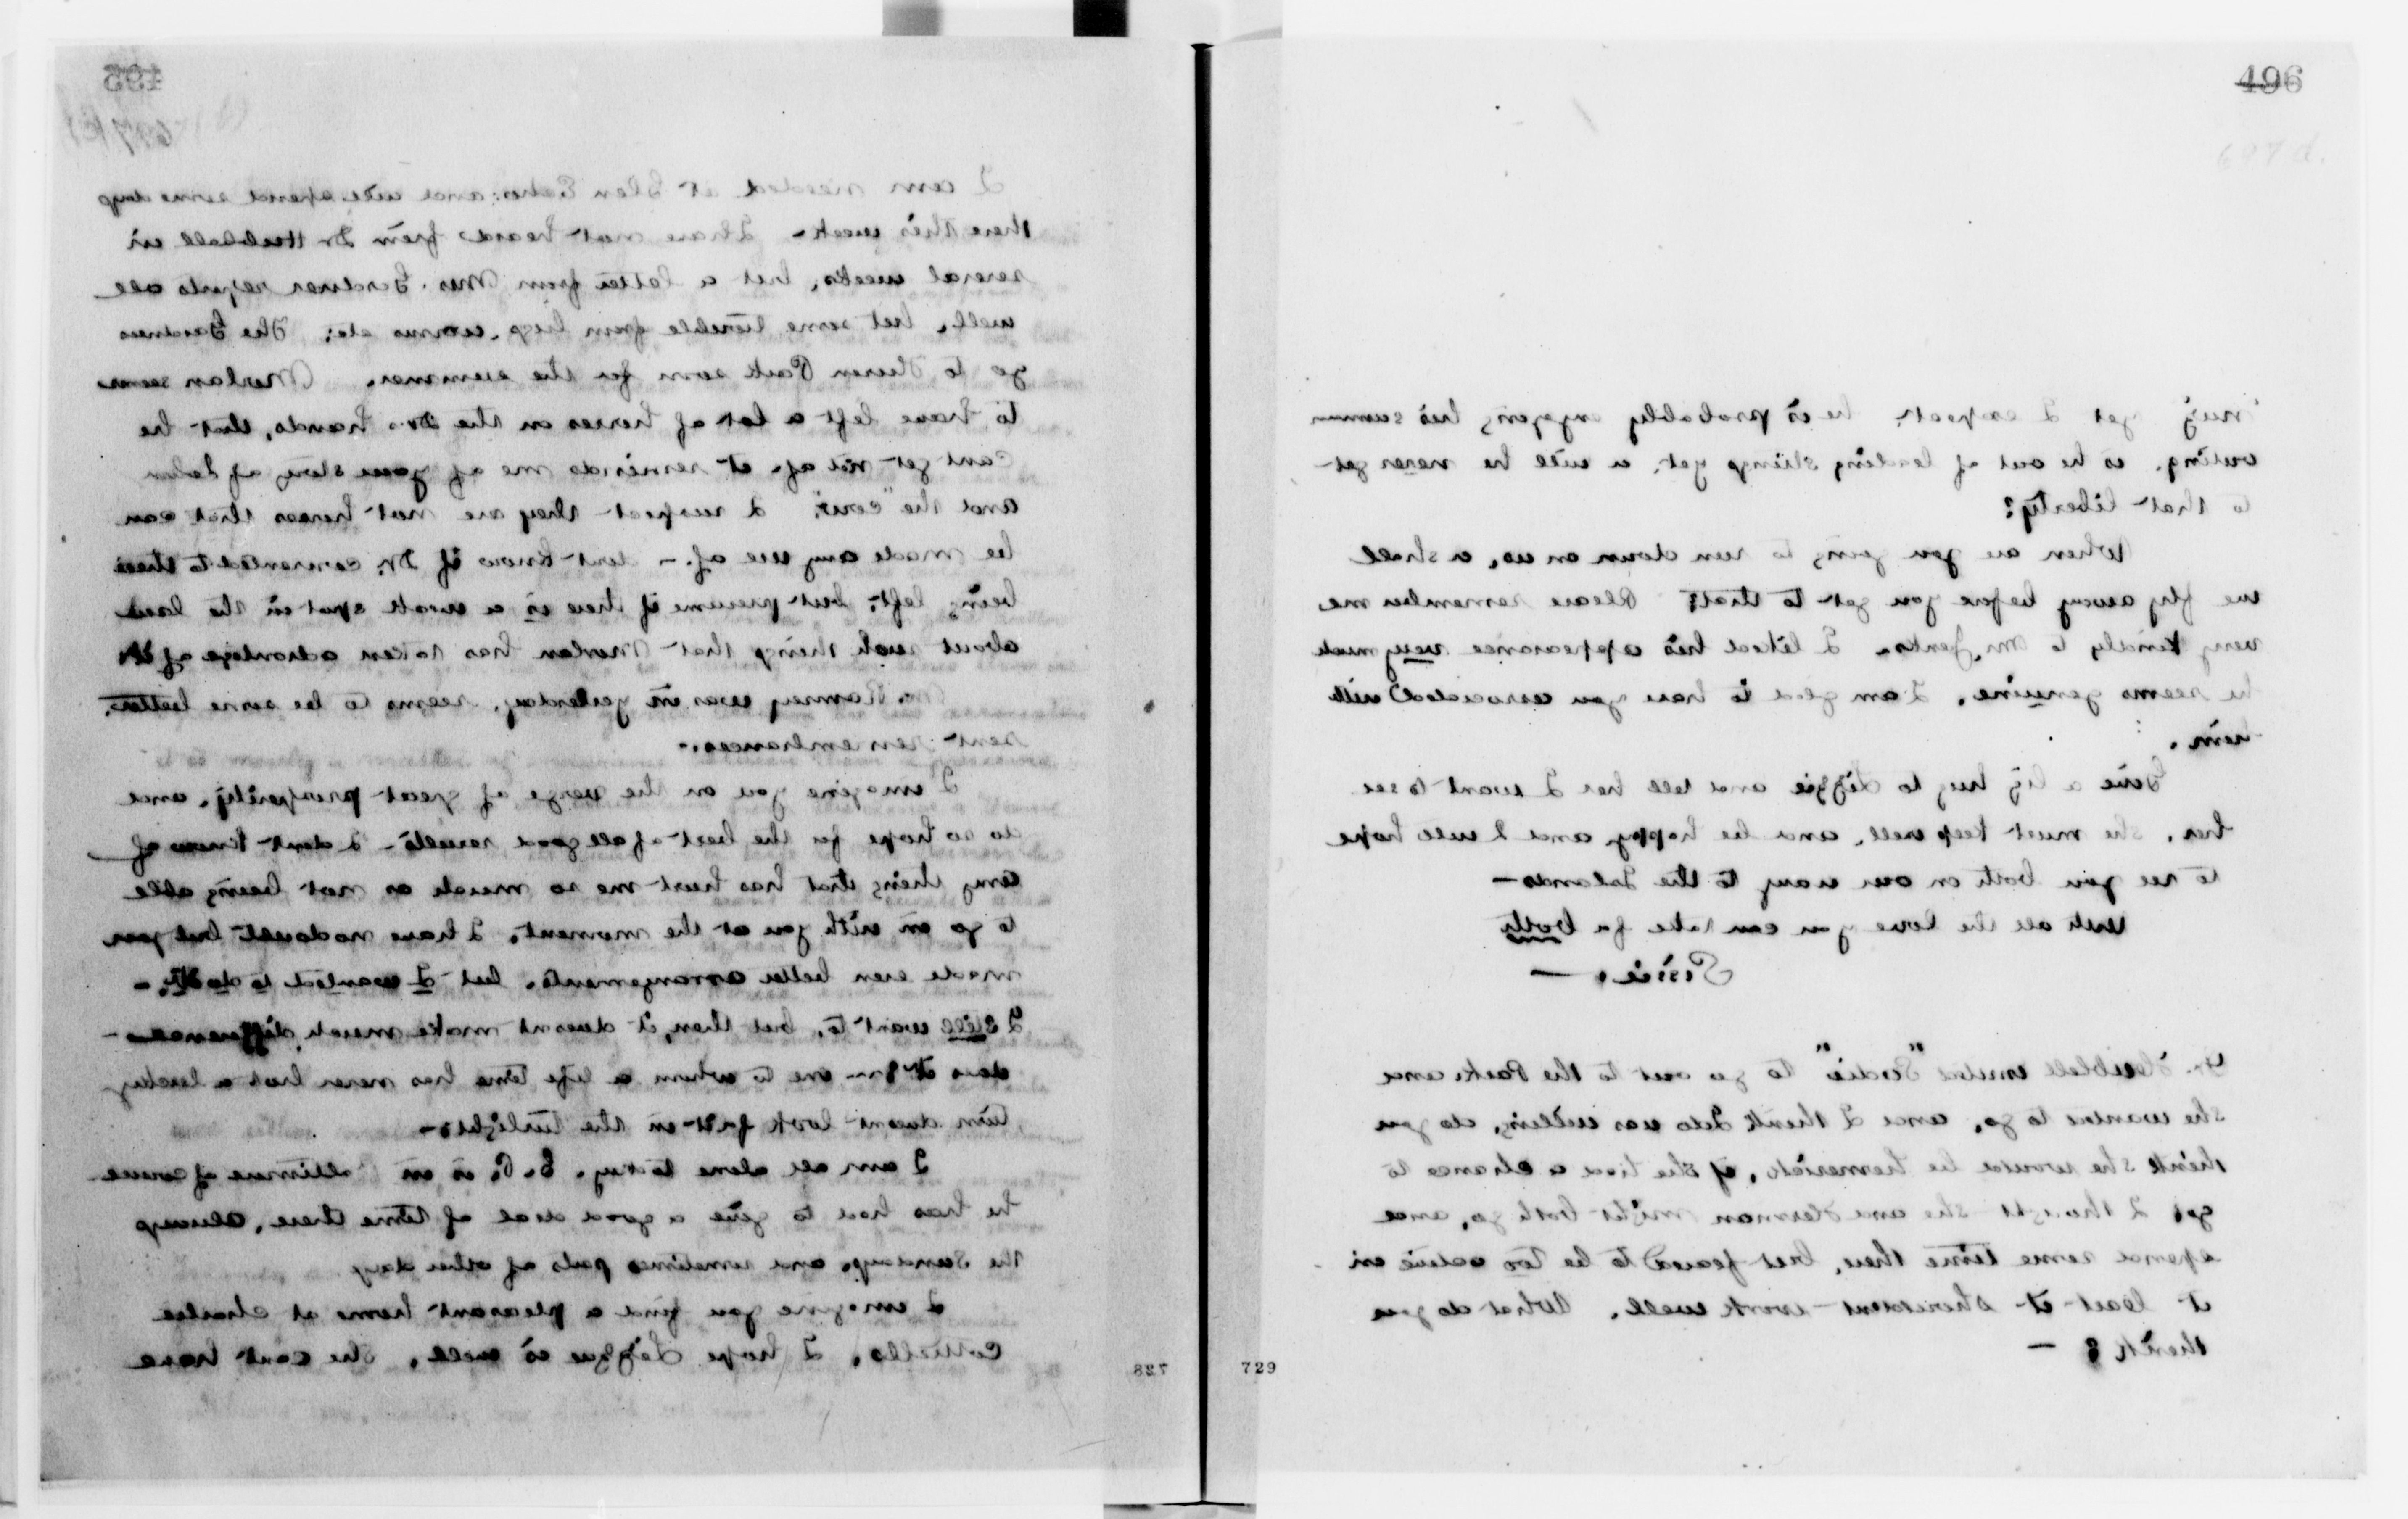 495
697(c)
I am needed at Glen Echo: and will spend some days
there this week - I have not heard from Dr Hubbell in
several weeks, but a letter from Mrs. Gardner reports all
well, but some trouble from hog worms etc; The Gardners
go to Huron Park soon for the summer. Morlan seems
to have left a lot of horses on the Drs hands, that he
cant get rid of. it reminds me of your story of John
and the "cow". I suspect they are not horses that can
be made any use of. - dont know if Dr. consented to their
being left, but presume if there is a weak spot in the land
about such things that Morlan has taken advantage of it
Mr. Ramsey was in yesterday, seems to be some better.
sent remembrances. -
I imagine you on the verge of great prosperity, and
do so hope for the best of all good results - I dont know of
any thing that has hurt me so much as not being able
to go on with you at the moment. I have no doubt but you
made even better arrangements. but I wanted to do it. -
I still want to. but then, it doesnt make much difference -
does it - one to whom a life time has never but a lucky
turn doesnt look for it in the twilight. -
I am all alone today. B. P. is in Baltimore of course
he has had to give a good deal of time there, always
the Sundays, and sometimes parts of other days
I imagine you find a pleasant home at Charlie
Cottrells, I hope Lizzie is well, She cant have
827
496
697 d.
'ruig yet I expect. he is probably enjoying his summer
outing, is he out of leading strings yet. or will he never get
to that liberty?
When are you going to run down on us, or shall
we fly away before you get to that? Please remember me
very kindly to Mr Jenks. I liked his appearance very much
he seems genuine. I am glad to have you associated with
him.
Give a big hug to Lizzie and tell her I want to see
her. She must keep well, and be happy and I will hope
to see you both on our way to the Islands -
With all the love you can take for both
Sissie. -
Dr. Hubbell invited "Sadie" to go out to the Park and
she wanted to go, and I think Ida was willing, do you
think she would be homesick, if she had a chance to
go? I thought she and Herman might both go, and
spend some time there, but feared to be too active in
it least it shouldnt work well. What do you
think? -
729